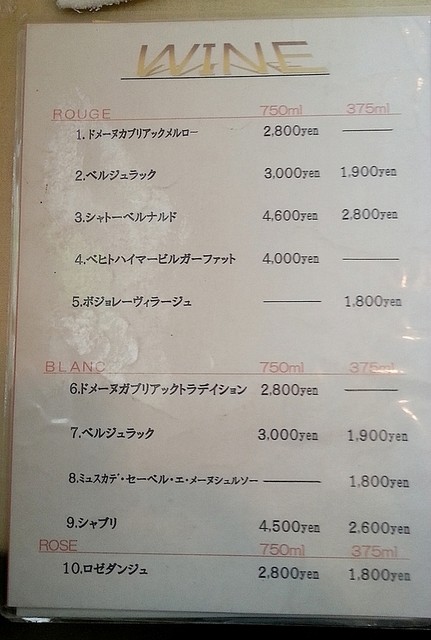 WINE
ROUGE 750ml 375ml
1.ドメーヌカブリアックメルロー 2,800yen ———
2.ベルジュラック 3,000yen 1,900yen
3.シャトーベルナルド 4,600yen 2,800yen
4.ベヒトハイマーピルガーファット 4,000yen ———
5.ボジョレーヴィラージュ ——— 1,800yen
BLANC 750ml 375ml
6.ドメーヌガブリアックトラデイション 2,800yen ———
7.ベルジュラック 3,000yen 1,900yen
8.ミュスカデ・セーベル・エ・メーヌシュルソー ——— 1,800yen
9.シャブリ 4,500yen 2,600yen
ROSE 750ml 375ml
10.ロゼダンジュ 2,800yen 1,800yen